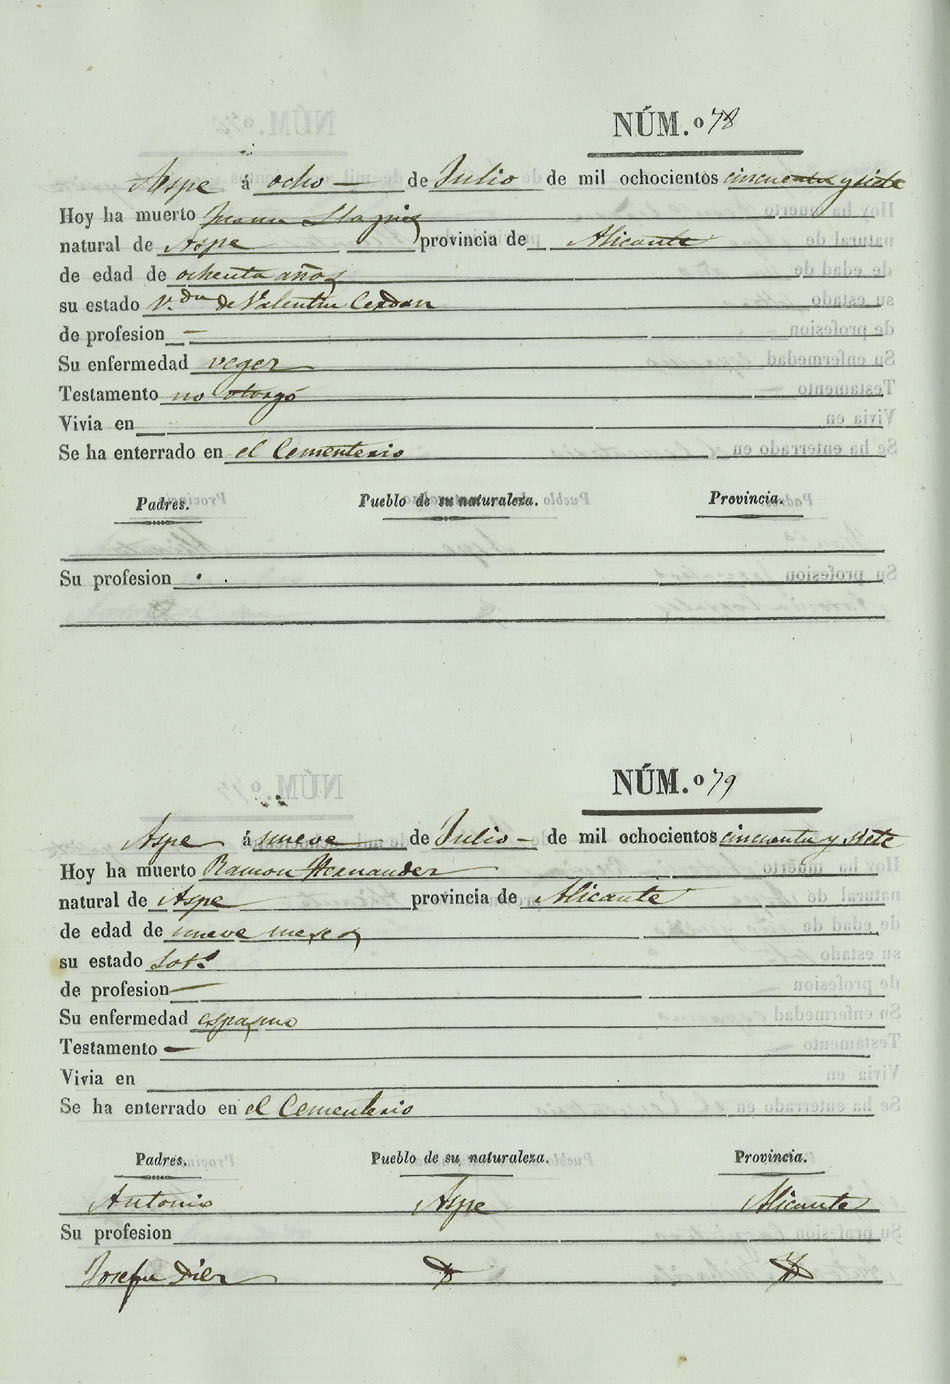 NÚM.º 78
Aspe á ocho de Julio de mil ochocientos cincuenta y siete
Hoy ha muerto Juana
natural de Aspe provincia de Alicante
de edad de ochenta años
su estado V.da de Valentin Cerdan
de profesion —
Su enfermedad veger
Testamento no otorgó
Vivia en
Se ha enterrado en el Cementerio
Padres. Pueblo de su naturaleza. Provincia.
Su profesion
NÚM.º 79
Aspe á nueve de Julio de mil ochocientos cincuenta y siete
Hoy ha muerto Ramon Hernandez
natural de Aspe provincia de Alicante
de edad de nueve meses
su estado
de profesion —
Su enfermedad espasmo
Testamento —
Vivia en
Se ha enterrado en el Cementerio
Padres. Pueblo de su naturaleza. Provincia.
Antonio Aspe Alicante
Su profesion
Josefa Diez